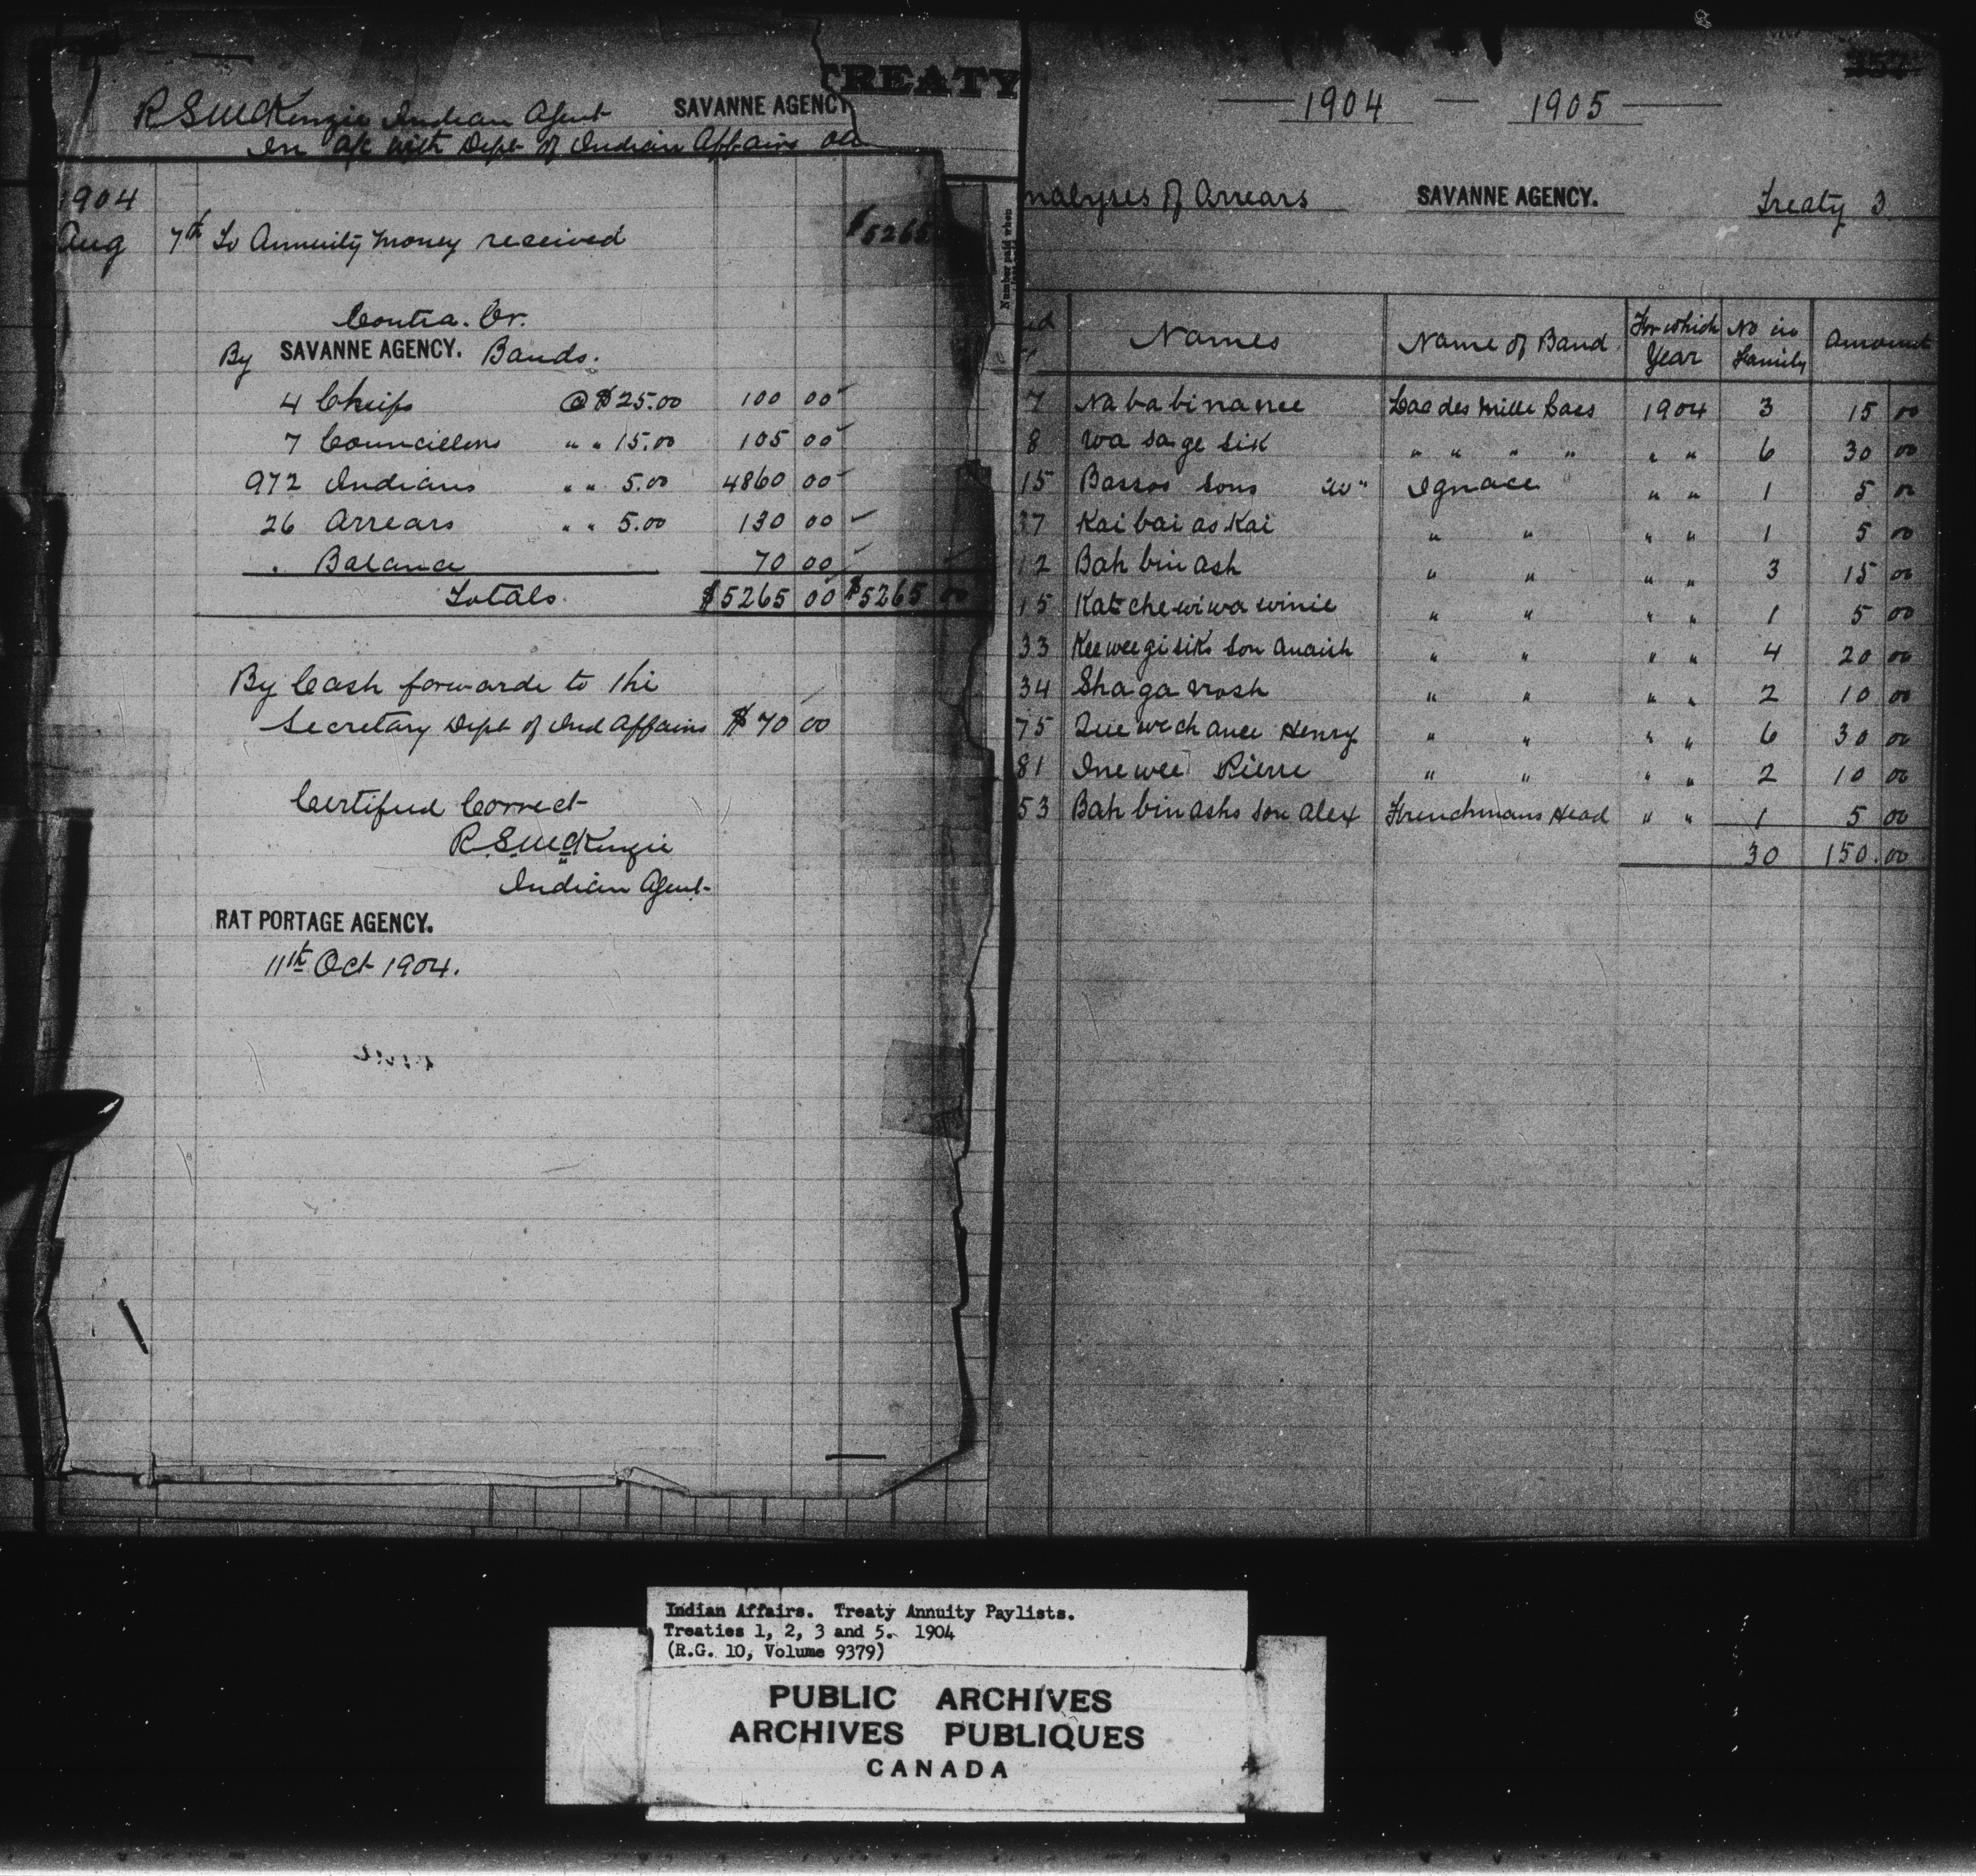 TREATY
R S McKenzie Indian Agent SAVANNE AGENCY
In a/c with Dept of Indian Affairs
1904
Aug 7th To Annuity Money received $5265
Contra. Cr.
By SAVANNE AGENCY. Bands.
4 Chiefs @ $25.00 100 00
7 Councillors " " 15.00 105 00
972 Indians " " 5.00 4860 00
26 Arrears " " 5.00 130 00
Balance 70 00
Totals $5265 00 $5265 00
By Cash forwarde to the
Secretary Dept of Ind Affairs $70 00
Certified Correct
R. S. McKenzie
Indian Agent
RAT PORTAGE AGENCY.
11th Oct 1904.
Number paid when
1904 — 1905
nalyses of Arrears SAVANNE AGENCY. Treaty 3
Names Name of Band For which Year No in Family Amount
7 Na ba bi na nee Lac des Mille Lacs 1904 3 15 00
8 Wa sa ge sik " " " " " " 6 30 00
15 Bassos sons Ignace " " 1 5 00
37 Kai bai as kai " " " " 1 5 00
12 Bah bin ash " " " " 3 15 00
15 Kat che wi wa winie " " " " 1 5 00
33 Kee wee gi siks son Anaish " " " " 4 20 00
34 Sha ga nosh " " " " 2 10 00
75 Que wech ance Henry " " " " 6 30 00
81 Ine wee Pierre " " " " 2 10 00
53 Bah bin ashs son Alex Frenchmans Head " " 1 5 00
30 150.00
Indian Affairs. Treaty Annuity Paylists.
Treaties 1, 2, 3 and 5. 1904
(R.G. 10, Volume 9379)
PUBLIC ARCHIVES
ARCHIVES PUBLIQUES
CANADA